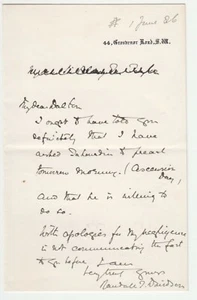 1 June 26
44, Grosvenor Road, S.W.
My dear Dalton
I ought to have told you
definitely that I have
asked to preach
tomorrow morning. (Ascension
Day)
and that he is willing to
do so.
With apologies for my negligence
in not communicating the fact
to you before I am
yours
Randall T. Davidson